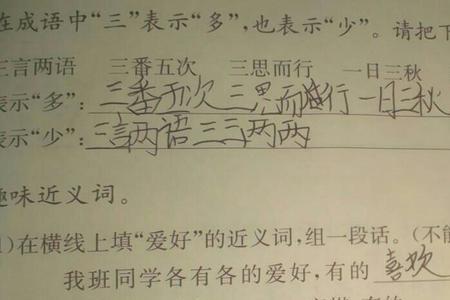 在成语中“三”表示“多”,也表示“少”。请把下
三言两语 三番五次 三思而行 一日三秋
表示“多”: 三番五次 三思而行 一日三秋
表示“少”: 三言两语 三三两两
趣味近义词。
)在横线上填“爱好”的近义词,组一段话。(不能
我班同学各有各的爱好,有的 喜欢